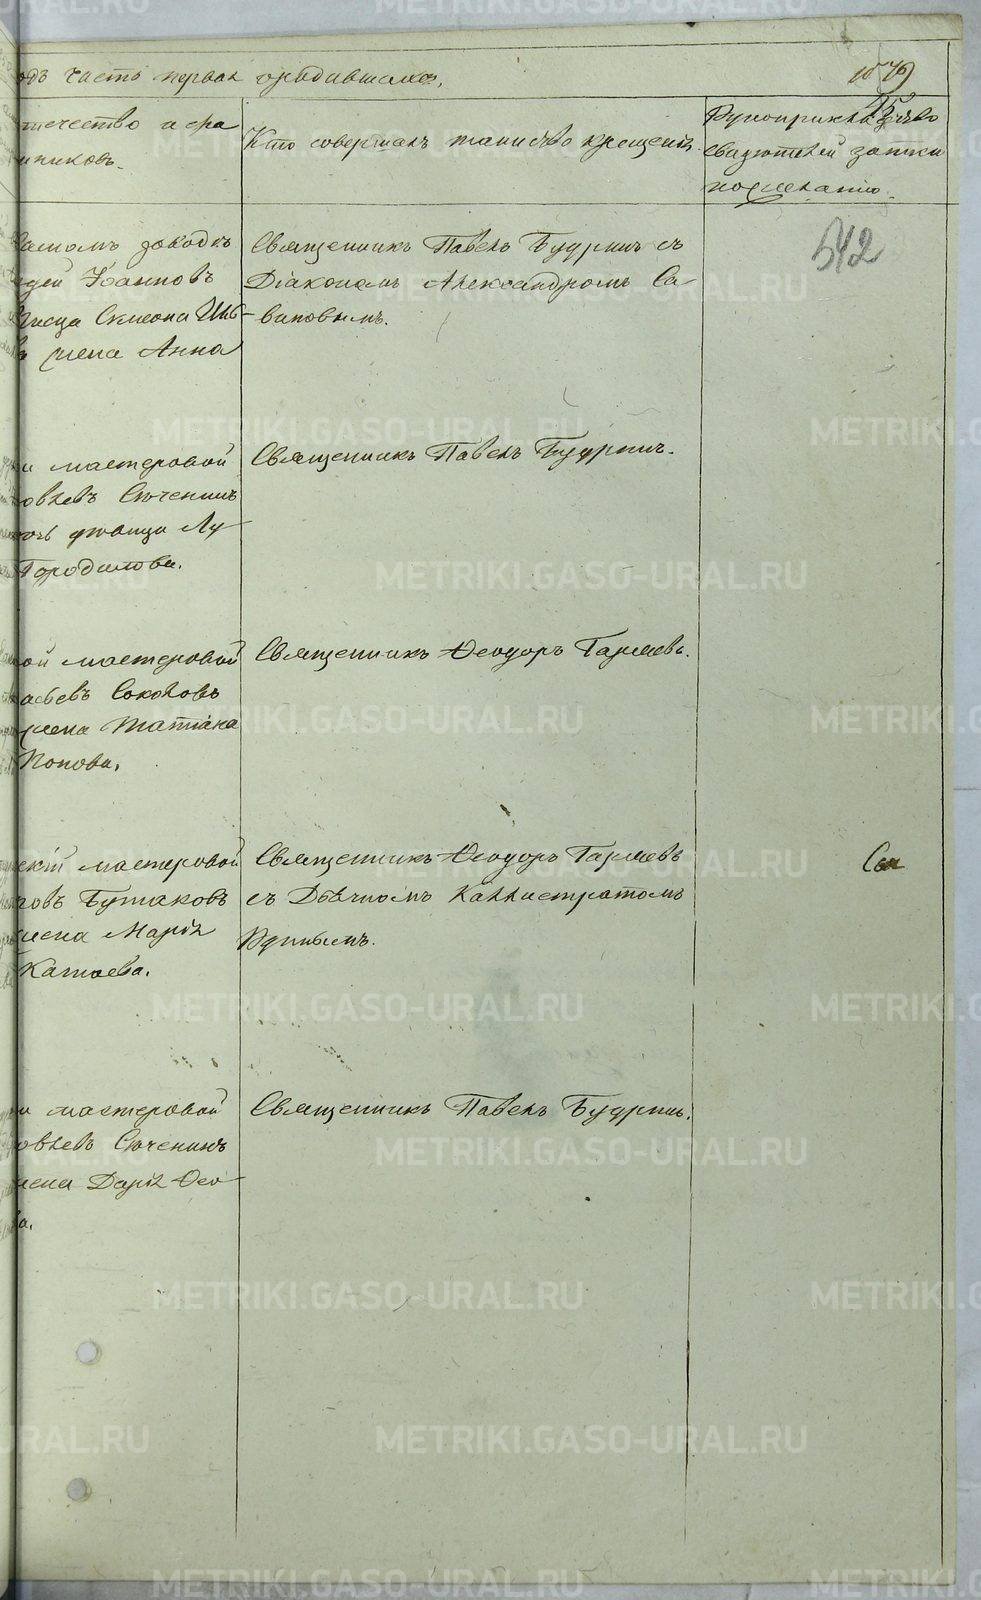 одъ часть первая о родившихся.
542
отчество и фа
мниковъ.
Кто совершалъ таинство крещенія.
Рукоприкладство
свидѣтелей записи
по желанію.
заводѣ
Іоанновъ
писца Симеона
жена Анна
Священникъ Павелъ Будринъ съ
Діакономъ Александромъ Са-
виновымъ.
и мастеровой
овлевъ Сюченинъ
дочь дѣвица Лу-
Городилова.
Священникъ Павелъ Будринъ.
ой мастеровой
асьевъ Соколовъ
жена Татіана
Попова.
Священникъ Ѳеодоръ Гаряевъ.
скій мастеровой
товъ Бутаковъ
жена Марія
Катаева.
Священникъ Ѳеодоръ Гаряевъ
съ Дьячкомъ Каллистратомъ
Удинымъ.
и мастеровой
овлевъ Сюченинъ
жена Дарія Ѳео-
ва.
Священникъ Павелъ Будринъ.
METRIKI.GASO-URAL.RU